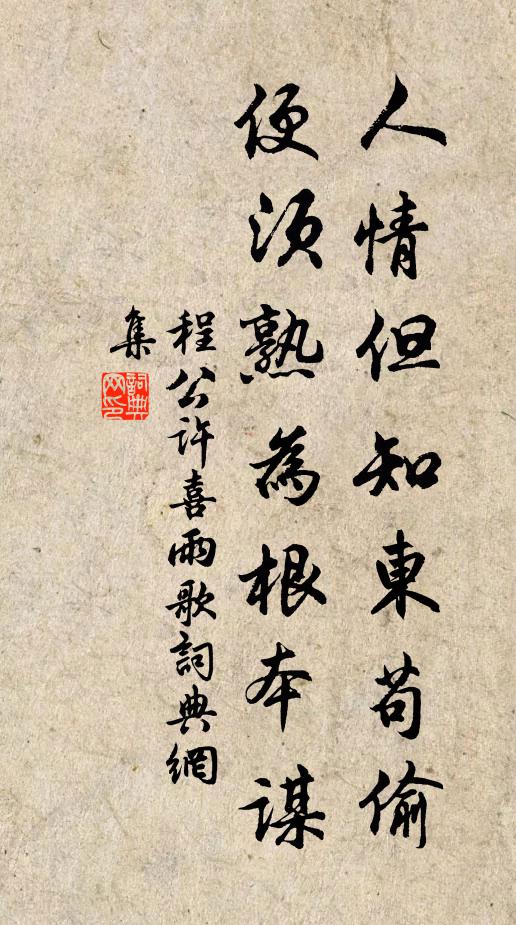 人情但知東苟偷
便須熟為根本謀
程公許喜雨歌詞典網
集
詞典
网印